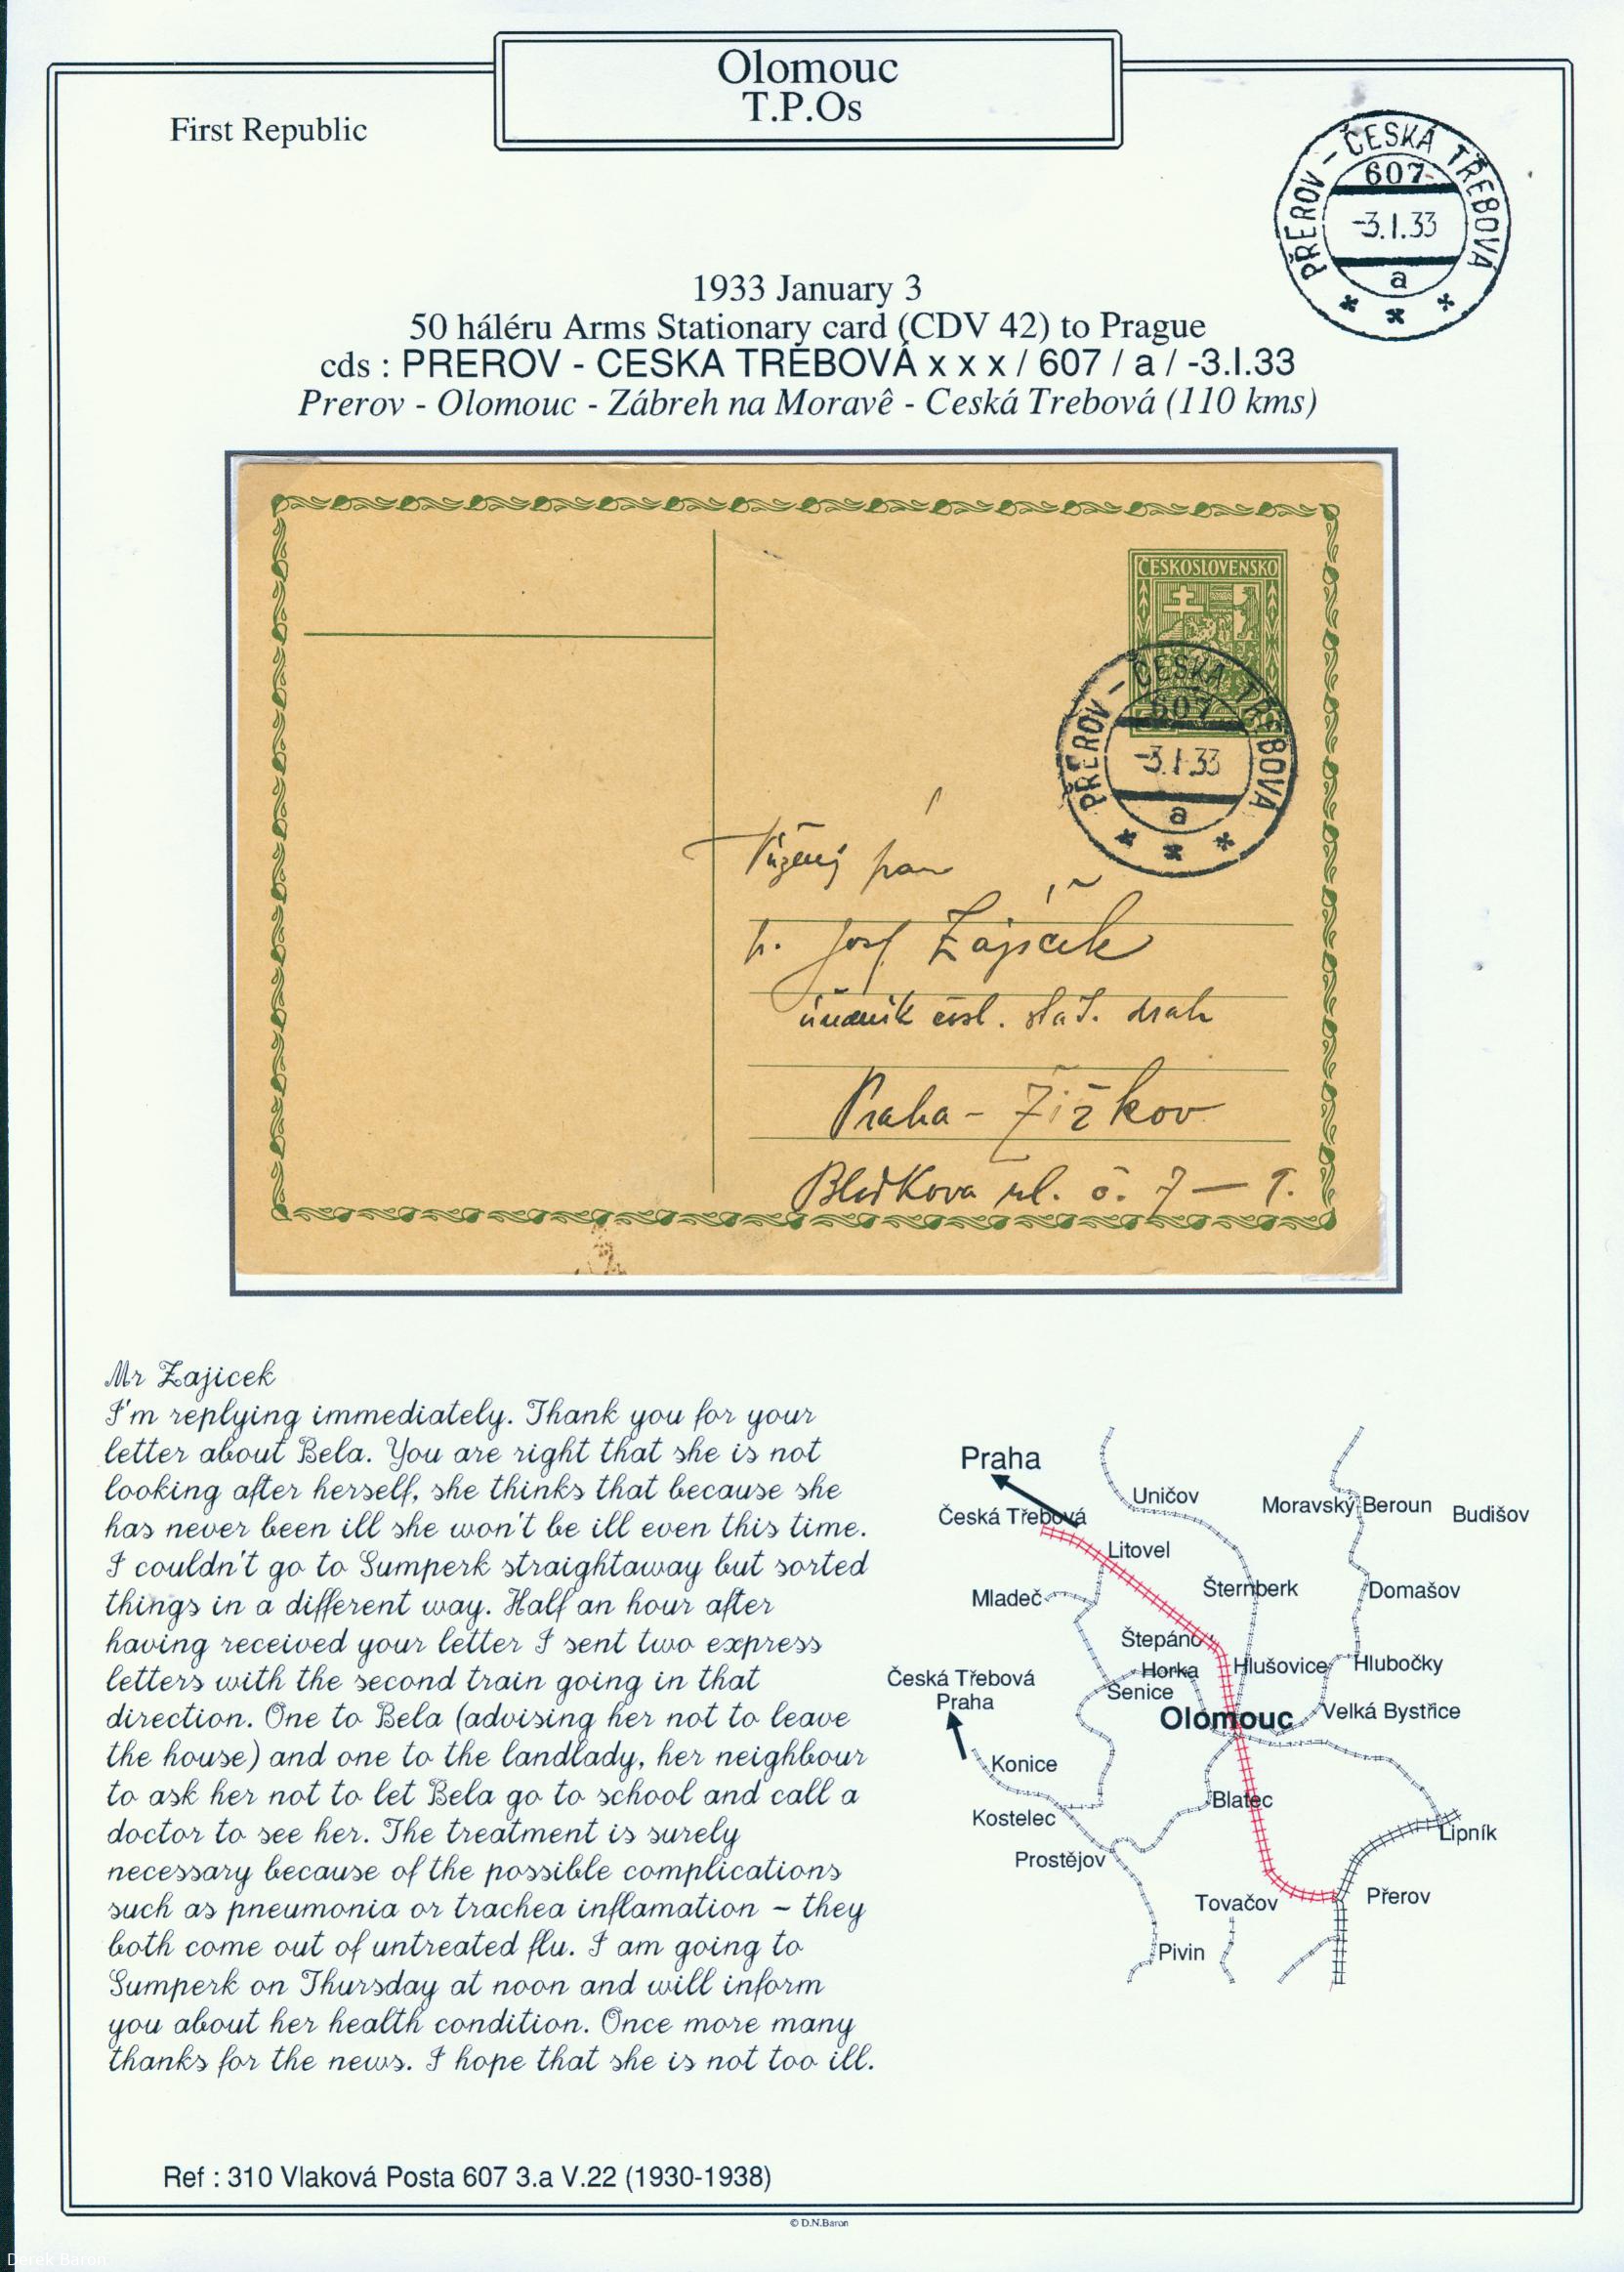 Olomouc
T.P.Os
First Republic
PŘEROV - ČESKÁ TŘEBOVÁ
607
-3.I.33
a
* * *
1933 January 3
50 háléru Arms Stationary card (CDV 42) to Prague
cds : PREROV - CESKA TRÈBOVÁ x x x / 607 / a / -3.I.33
Prerov - Olomouc - Zábreh na Moravê - Ceská Trebová (110 kms)
ČESKOSLOVENSKO
PŘEROV - ČESKÁ TŘEBOVÁ
607
-3.I.33
a
* * *
Vážený pán
p. Josef Zajíček
úředník čsl. stát. drah
Praha - Žižkov
ul. č. 7 —
Mr Zajicek
I'm replying immediately. Thank you for your
letter about Bela. You are right that she is not
looking after herself, she thinks that because she
has never been ill she won't be ill even this time.
I couldn't go to Sumperk straightaway but sorted
things in a different way. Half an hour after
having received your letter I sent two express
letters with the second train going in that
direction. One to Bela (advising her not to leave
the house) and one to the landlady, her neighbour
to ask her not to let Bela go to school and call a
doctor to see her. The treatment is surely
necessary because of the possible complications
such as pneumonia or trachea inflamation - they
both come out of untreated flu. I am going to
Sumperk on Thursday at noon and will inform
you about her health condition. Once more many
thanks for the news. I hope that she is not too ill.
Praha
Česká Třebová
Uničov
Moravský Beroun
Budišov
Litovel
Mladeč
Šternberk
Domašov
Štepánov
Horka
Hlušovice
Hlubočky
Česká Třebová
Praha
Senice
Olomouc
Velká Bystřice
Konice
Kostelec
Blatec
Lipník
Prostějov
Tovačov
Přerov
Pivin
Ref : 310 Vlaková Posta 607 3.a V.22 (1930-1938)
© D.N.Baron
Derek Baron